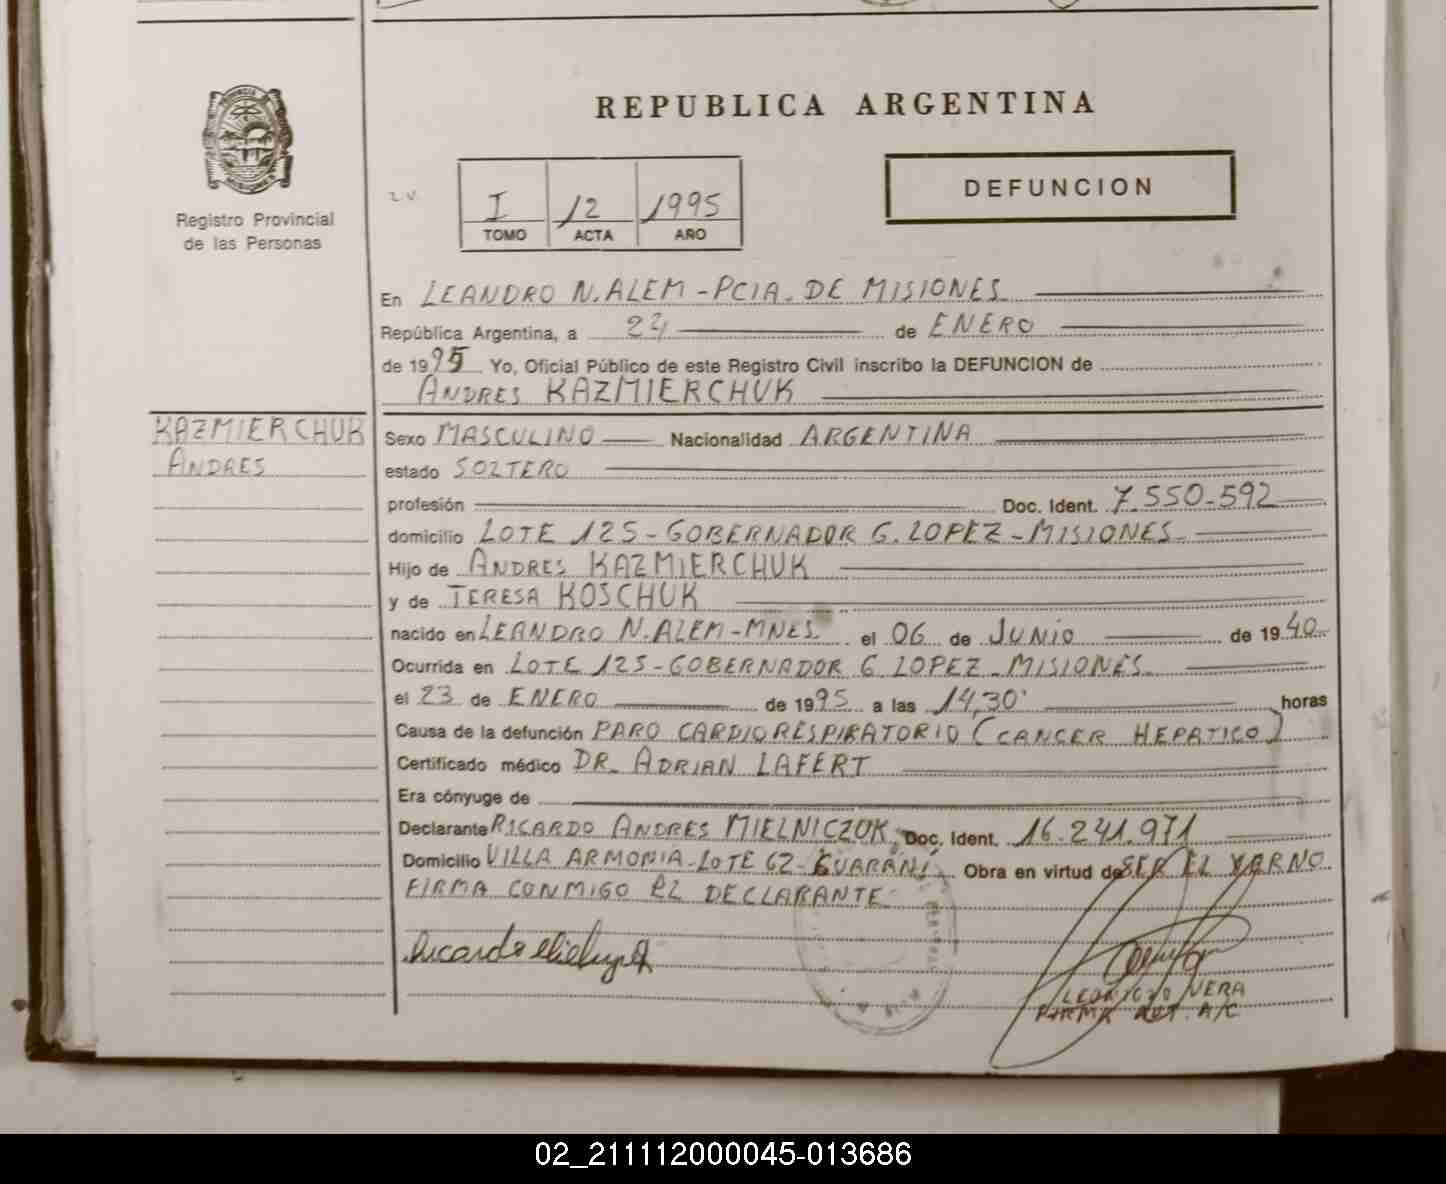 REPUBLICA ARGENTINA
Registro Provincial
de las Personas
I 12 1995
TOMO ACTA AÑO
DEFUNCION
En LEANDRO N. ALEM - PCIA. DE MISIONES
República Argentina, a 24 de ENERO
de 1995 Yo, Oficial Público de este Registro Civil inscribo la DEFUNCION de
ANDRES KAZMIERCHUK
KAZMIERCHUK
ANDRES
Sexo MASCULINO Nacionalidad ARGENTINA
estado SOLTERO
profesión Doc. Ident. 7.550-592
domicilio LOTE 125-GOBERNADOR G. LOPEZ-MISIONES
Hijo de ANDRES KAZMIERCHUK
y de TERESA KOSCHUK
nacido en LEANDRO N. ALEM-MNES el 06 de JUNIO de 1940
Ocurrida en LOTE 125-GOBERNADOR G. LOPEZ-MISIONES
el 23 de ENERO de 1995 a las 14,30' horas
Causa de la defunción PARO CARDIORESPIRATORIO (CANCER HEPATICO)
Certificado médico DR. ADRIAN LAFERT
Era cónyuge de
Declarante RICARDO ANDRES MIELNICZUK, Doc. Ident. 16.241.971
Domicilio VILLA ARMONIA-LOTE 62-GUARANI Obra en virtud de SER EL YERNO
FIRMA CONMIGO EL DECLARANTE
VERA
FIRMA AUT. A/C
02_211112000045-013686